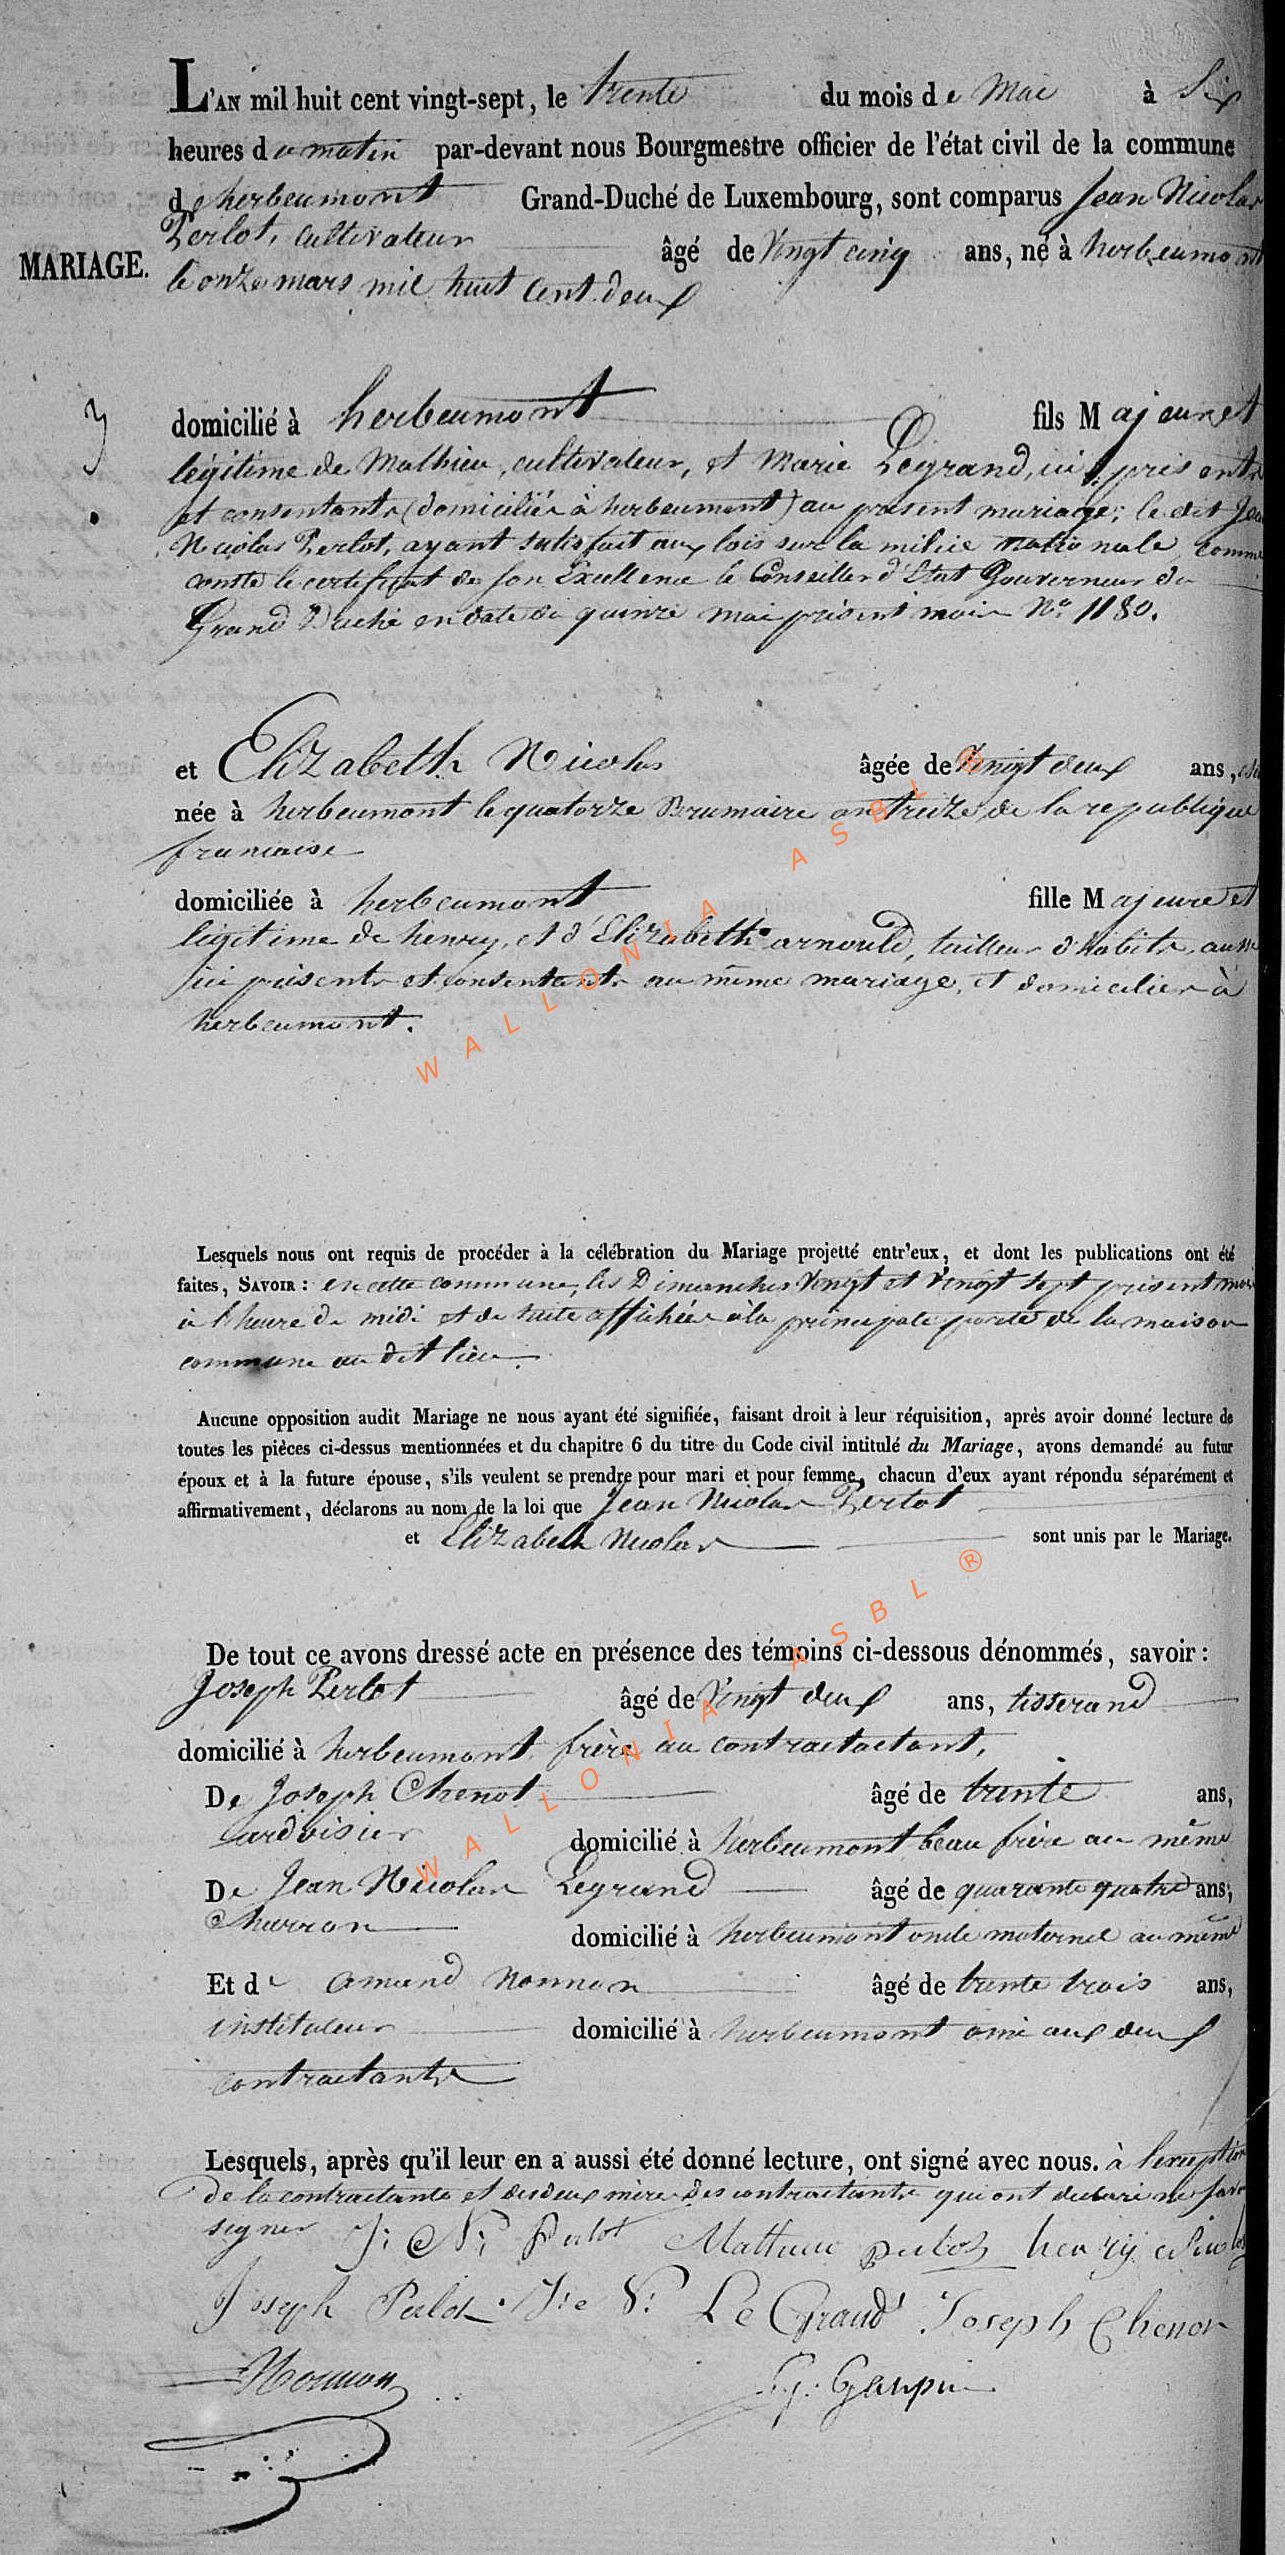 L'AN mil huit cent vingt-sept, le trente du mois de Mai à Six
heures du matin par-devant nous Bourgmestre officier de l'état civil de la commune
de herbeumont Grand-Duché de Luxembourg, sont comparus Jean Nicolas
Perlot, cultivateur âgé de Vingt cinq ans, né à herbeumont
MARIAGE.
le onze mars mil huit cent deux
3
domicilié à herbeumont fils Majeur et
légitime de Mathieu, cultivateur, et Marie Legrand, ici
et consentants (domiciliés à herbeumont) au présent mariage; le dit Jean
Nicolas Perlot, ayant satisfait aux lois sur la milice nationale comme
conste le certificat de Son Excellence le Conseiller d'Etat Gouverneur du
Grand Duché en date du quinze mai présent mois No 1180.
et Elizabeth Nicolas âgée de Vingt deux ans,
née à herbeumont le quatorze Brumaire an treize de la republique
francaise
domiciliée à herbeumont fille Majeure et
légitime de henry, et d'Elizabeth arnould, tailleur d'habits, aussi
ici présents et consentants au même mariage, et domiciliés à
herbeumont.
Lesquels nous ont requis de procéder à la célébration du Mariage projetté entr'eux, et dont les publications ont été
faites, SAVOIR : en cette commune, les Dimanches Vingt et Vingt Sept présent mois
à l'heure de midi et de suite affichées à la principale porte de la maison
commune au dit lieu.
Aucune opposition audit Mariage ne nous ayant été signifiée, faisant droit à leur réquisition, après avoir donné lecture de
toutes les pièces ci-dessus mentionnées et du chapitre 6 du titre du Code civil intitulé du Mariage, avons demandé au futur
époux et à la future épouse, s'ils veulent se prendre pour mari et pour femme, chacun d'eux ayant répondu séparément et
affirmativement, déclarons au nom de la loi que Jean Nicolas Perlot
et Elizabeth Nicolas sont unis par le Mariage.
De tout ce avons dressé acte en présence des témoins ci-dessous dénommés, savoir :
Joseph Perlot âgé de Vingt deux ans, tisserand
domicilié à herbeumont frère au contractactant,
De Joseph Chenot âgé de trente ans,
ardoisier domicilié à herbeumont beau frère au même
De Jean Nicolas Legrand âgé de quarante quatre ans,
Charron domicilié à herbeumont oncle maternel au même
Et de amand nonnon âgé de trente trois ans,
instituteur domicilié à herbeumont ami aux deux
contractants
Lesquels, après qu'il leur en a aussi été donné lecture, ont signé avec nous. à l'exception
de la contractante et des deux mères des contractants qui ont declaré ne savoir
signer J: N: Perlot Mathieu perlot henry Nicolas
Joseph Perlot J: N: Le Grand Joseph Chenot
Nonnon
WALLONIA ASBL ®
WALLONIA ASBL ®